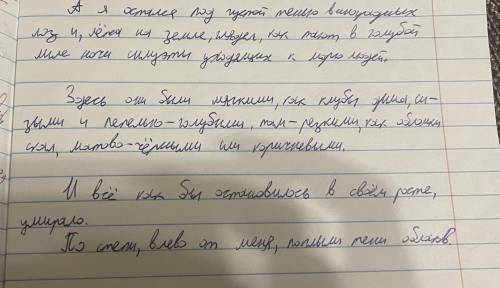 А я остался под густой тенью виноградных
лоз и, лёжа на земле, глядел, как тают в голубой
мгле ночи силуэты уходящих к морю людей.
Здесь они были мягкими, как клубы дыма, си-
зыми и пепельно-голубыми, там-резкими, как обломки
скал, матово-чёрными или коричневыми.
И всё как бы остановилось в своём росте,
умирало.
По степи, влево от меня, поплыли тени облаков.